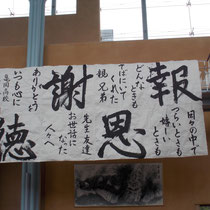 報
日々の中で
つらいときも
どんな
ときも
そばにいて
くれた
親兄弟
恩
謝
先生友達
お世話に
なった
人々へ
ありがとうを
いつも心に
徳